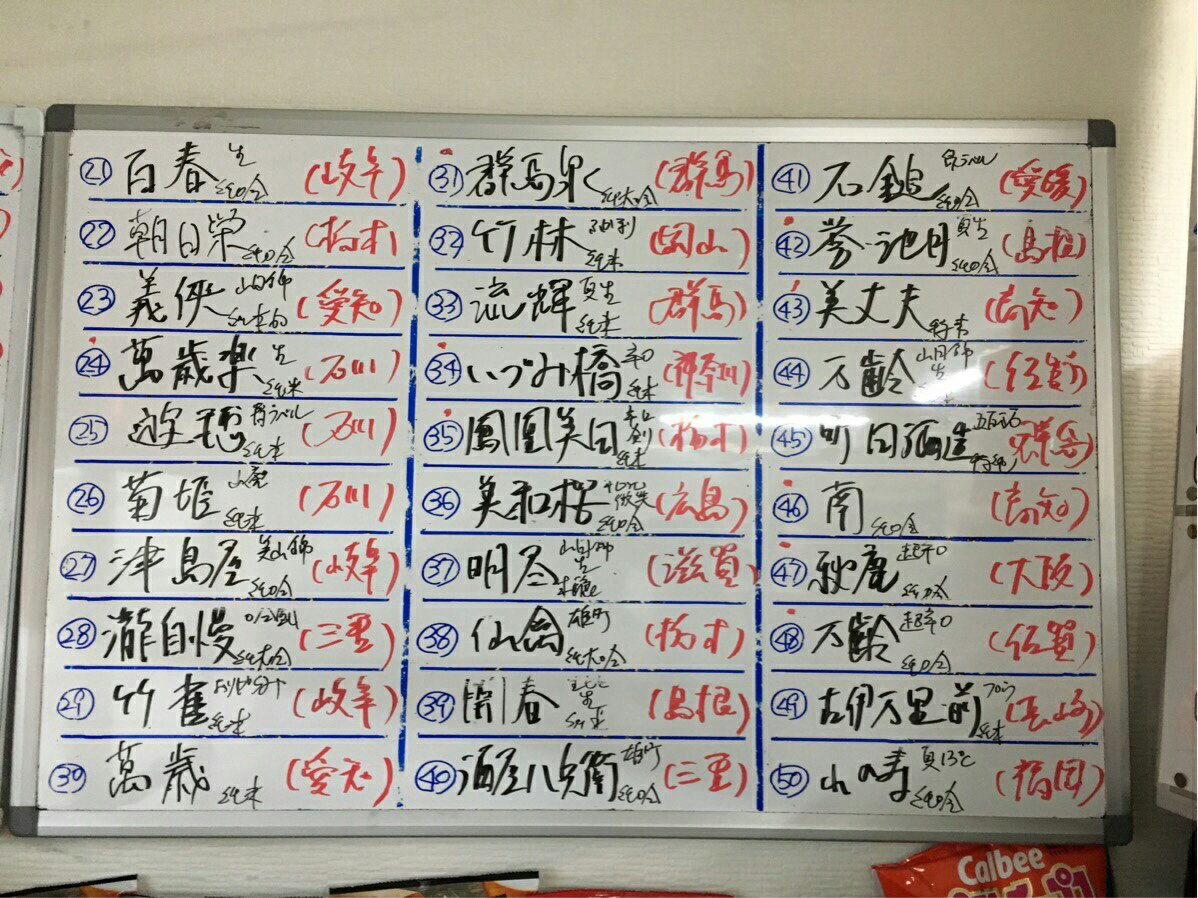 ㉑ 百春 生 純吟 (岐阜)
㉒ 朝日栄 純吟 (栃木)
㉓ 義侠 山田錦 (愛知)
㉔ 萬歳楽 生 純米 (石川)
㉕ 遊穂 純米 (石川)
㉖ 菊姫 山廃 純米 (石川)
㉗ 津島屋 美山錦 純吟 (岐阜)
㉘ 瀧自慢 純大吟 (三重)
㉙ 竹雀 純米 (岐阜)
㉚ 萬歳 純米 (愛知)
㉛ 群馬泉 純大吟 (群馬)
㉜ 竹林 純米 (岡山)
㉝ 流輝 夏生 純米 (群馬)
㉞ いづみ橋 辛口 純米 (神奈川)
㉟ 鳳凰美田 純米 (栃木)
㊱ 美和桜 純吟 (広島)
㊲ 明尽 山田錦 生 (滋賀)
㊳ 仙禽 雄町 純大吟 (栃木)
㊴ 開春 純米 (島根)
㊵ 酒屋八兵衛 雄町 純吟 (三重)
㊶ 石鎚 純吟 (愛媛)
㊷ 誉池月 夏生 純吟 (島根)
㊸ 美丈夫 (高知)
㊹ 万齢 山田錦 生 (佐賀)
㊺ 町田酒造 五百万石 (群馬)
㊻ 南 純吟 (高知)
㊼ 秋鹿 超辛口 純吟 (大阪)
㊽ 万齢 超辛口 純吟 (佐賀)
㊾ 古伊万里前 純米 (長崎)
㊿ 山の壽 夏13℃ 純吟 (福岡)
Calbee